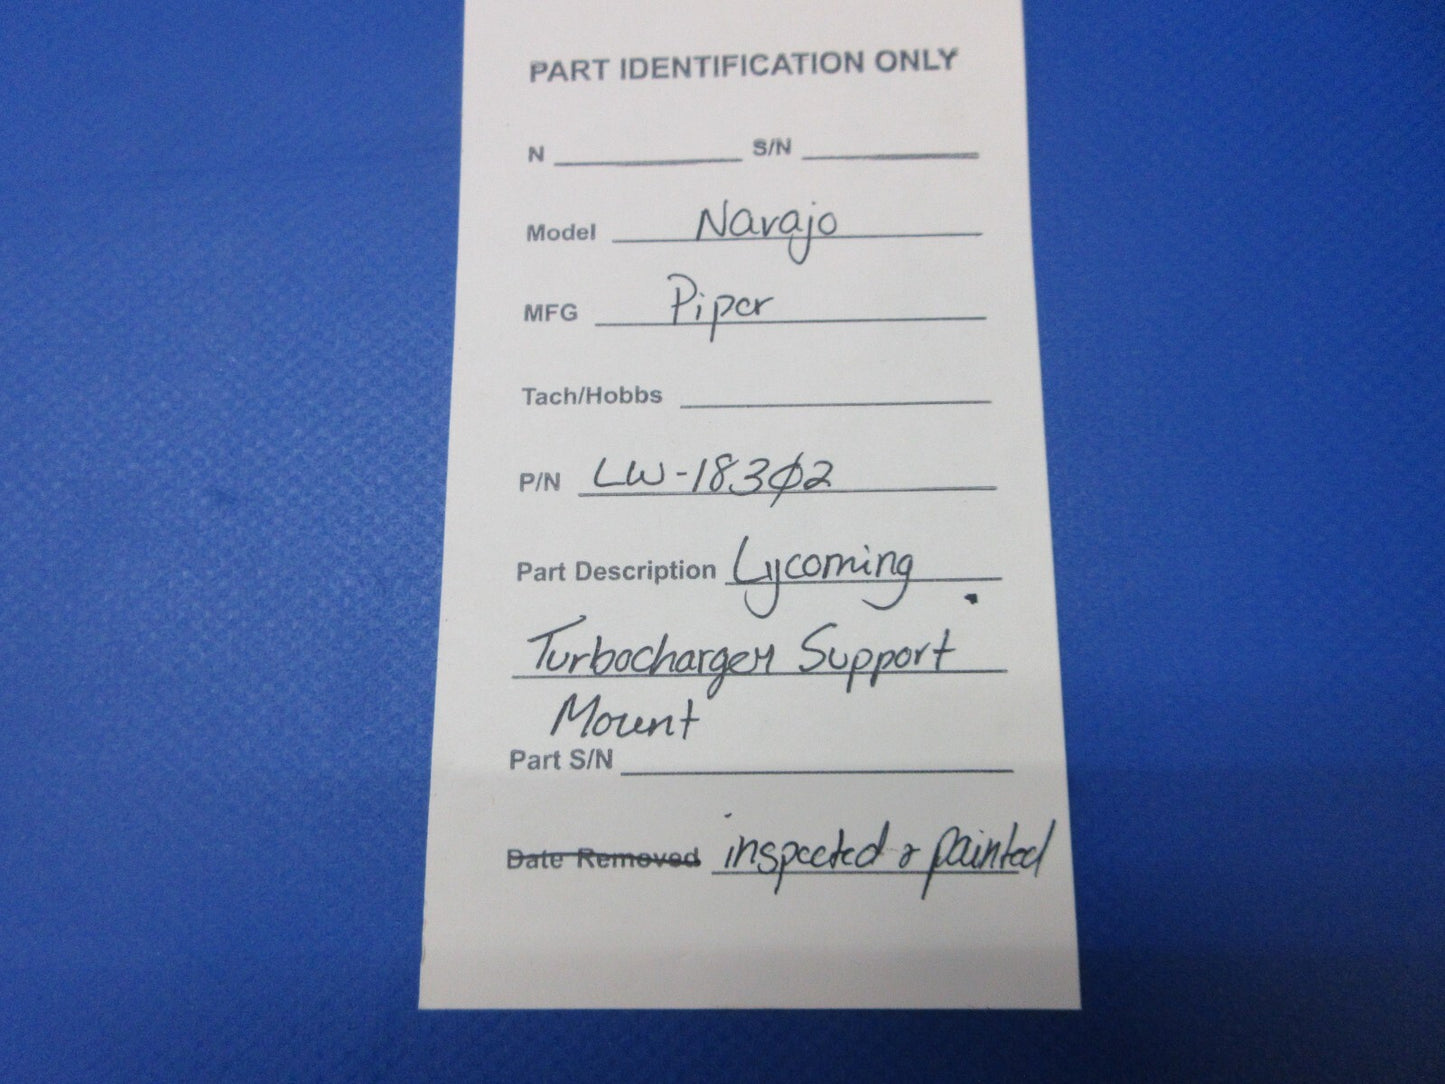 PART IDENTIFICATION ONLY
N S/N
Model Navajo
MFG Piper
Tach/Hobbs
P/N LW-183Ø2
Part Description Lycoming
Turbocharger Support
Mount
Part S/N
Date Removed inspected & painted